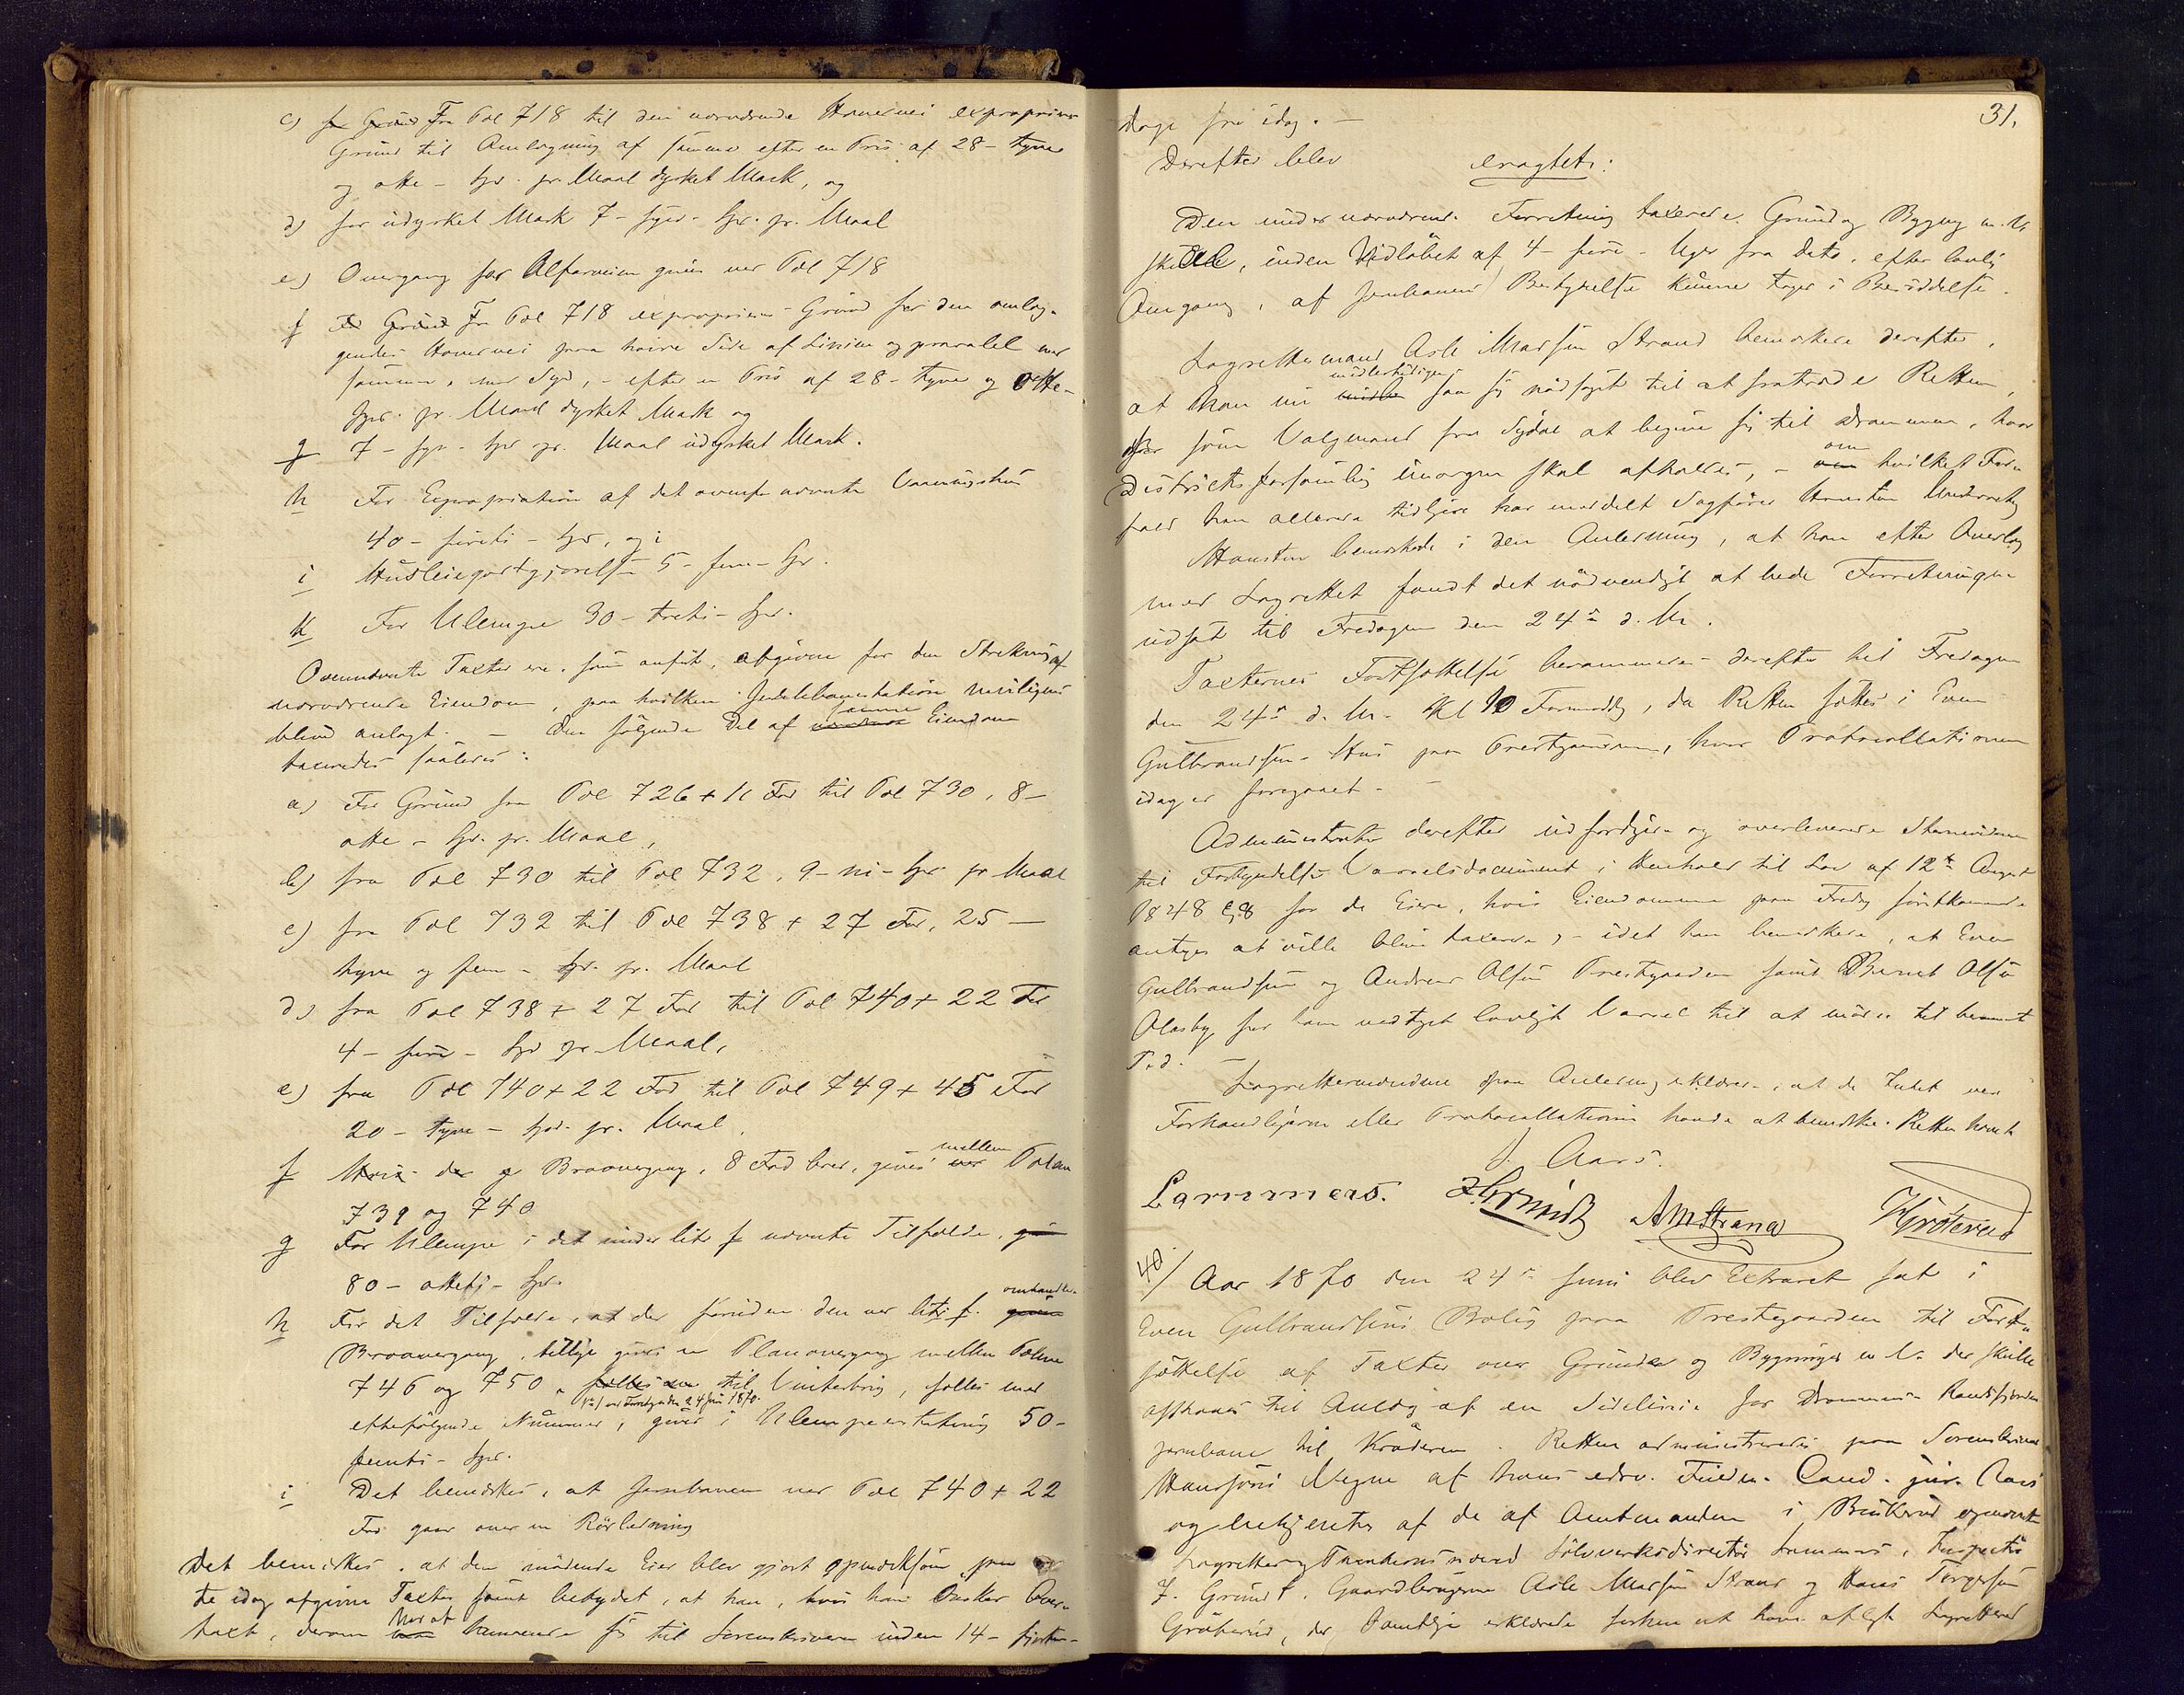 c) Fra Pæl 718 til den nærværende Hovedvei exproprieres
Grund til Omlægning af samme efter en Pris af 28 - tyve
og otte - Spd. pr. Maal dyrket Mark, og
d) for udyrket Mark 7 - syv - Spd. pr. Maal
e) Overgang for Alfarveien gives ved Pæl 718
f Fra Pæl 718 exproprieres Grund for den omlæg-
gendes Hovedvei paa høire Side af Linien og paralel med
samme, mod Syd, - efter en Pris af 28 - tyve og otte -
Spd. pr. Maal dyrket Mark og
g 7 - syv - Spd pr. Maal udyrket Mark.
h For Expropriation af det ovenfor nævnte Vaaningshus
40 - firti - Spd, og i
i Husleiegodtgjørelse 5 - fem - Spd.
k For Ulempe 30 - treti - Spd.
Ovennævnte Taxter ere, som anført, afgivne for den Strekning af
nærværende Eiendom, paa hvilken Jernbanestation muligens
bliver anlagt. - Den følgende Del af samme Eiendom
taxeredes saaledes:
a) For Grund fra Pæl 726 + 11 Fod til Pæl 730, 8 -
otte - Spd. pr. Maal,
b) fra Pæl 730 til Pæl 732, 9 - ni - Spd pr Maal
c) fra Pæl 732 til Pæl 738 + 27 Fod, 25 -
tyve og fem - Spd. pr. Maal
d) fra Pæl 738 + 27 Fod til Pæl 740 + 22 Fod
4 - fire - Spd pr. Maal,
e) fra Pæl 740 + 22 Fod til Pæl 749 + 45 Fod
20 - tyve - Spd. pr. Maal,
f Broovergang, 8 Fod bred, gives mellem Pælene
739 og 740
g For Ulempe i det under litr f nævnte Tilfælde,
80 - otteti - Spd.
h For det Tilfælde, at der foruden den ved litr f. omhandlede
Broovergang, tillige gives en Planovergang mellem Pælene
746 og 750, til Vinterbrug, fælles med
efterfølgende Nummer, gives i Ulempeerstatning 50 -
femti - Spd.
i Det bemærkes, at Jernbanen ved Pæl 740 + 22
Fod gaar over en Rørledning
Det bemærkes, at den mødende Eier blev gjort opmærksom paa
de idag afgivne Taxter samt betydet, at han, hvis han ønsker Over-
taxt, derom har at henvende sig til Sorenskriveren inden 14 - fjorten -
31.
dage fra idag. -
Derefter blev eragtet:
Den under nærværende Forretning taxerede Grund og Bygning m. M.
skulde, inden Udløbet af 4 - fire - Uger fra Dato, efter lovlig
Omgang, af Jernbanens Bestyrelse kunne tages i Besiddelse.
Lagrettemand Asle Madsen Strand bemærkede derefter,
at han nu midlertidigen saa sig nødsaget til at fratræde Retten,
for som Valgmand fra Sigdal at begive sig til Drammen, hvor
Districtsforsamling imorgen skal afholdes, - om hvilket For-
fald han allerede tidligere har meddelt Sagfører Houston Underretning
Houston bemærkede i den Anledning, at han efter Overlæg
med Lagrettet fandt det nødvendigt at bede Forretningen
udsat til Fredagen den 24de d. M.
Taxternes Fortsættelse berammedes derefter til Fredagen
den 24de d. M. Kl 10 Formiddag, da Retten sættes i Even
Gulbrandsens Hus paa Præstegaarden, hvor Protocollationen
idag er foregaaet. -
Administrator derefter udfærdigede og overleverede Stævnevidnerne
til Forkyndelse Varselsdocument i Henhold til Lov af 12te August
1848 § 8 for de Eiere, hvis Eiendomme paa Fredag førstkommende
antages at ville blive taxerede, - idet han bemærkede, at Even
Gulbrandsen og Andreas Olsen Præstegaarden samt Bernt Olsen
Olasby har vedtaget lovligt Varsel til at møde til berammet
Tid. -
Lagrettemændene paa Anledning erklærede, at de Intet ved
Forhandlingerne eller Protocollationen havde at bemærke. Retten hævet
J. Aars.
Lammers. J. Grindtz AMStrand HGrøterud
40/ Aar 1870 den 24de Juni blev Extraret sat i
Even Gulbrandsens Bolig paa Præstegaarden til Fort-
sættelse af Taxter over Grunde og Bygninger m. M. der skulle
afstaaes til Anlæg af en Sidelinie for Drammen Randsfjordens
Jernbane til Krøderen. Retten administreredes paa Sorenskriver
Hansens Vegne af hans edsv. Fuldm. Cand. jur. Aars
og betjentes af de af Amtmanden i Buskerud opnævnte
Lagrettes og Taxationsmænd Sølvverksdirectør Lammers, Inspectør
J. Grindt, Gaardbrugerne Asle Madsen Strand og Hans Torgersen
Grøterud, der samtlige erklærede forhen at have aflagt Lagretteed